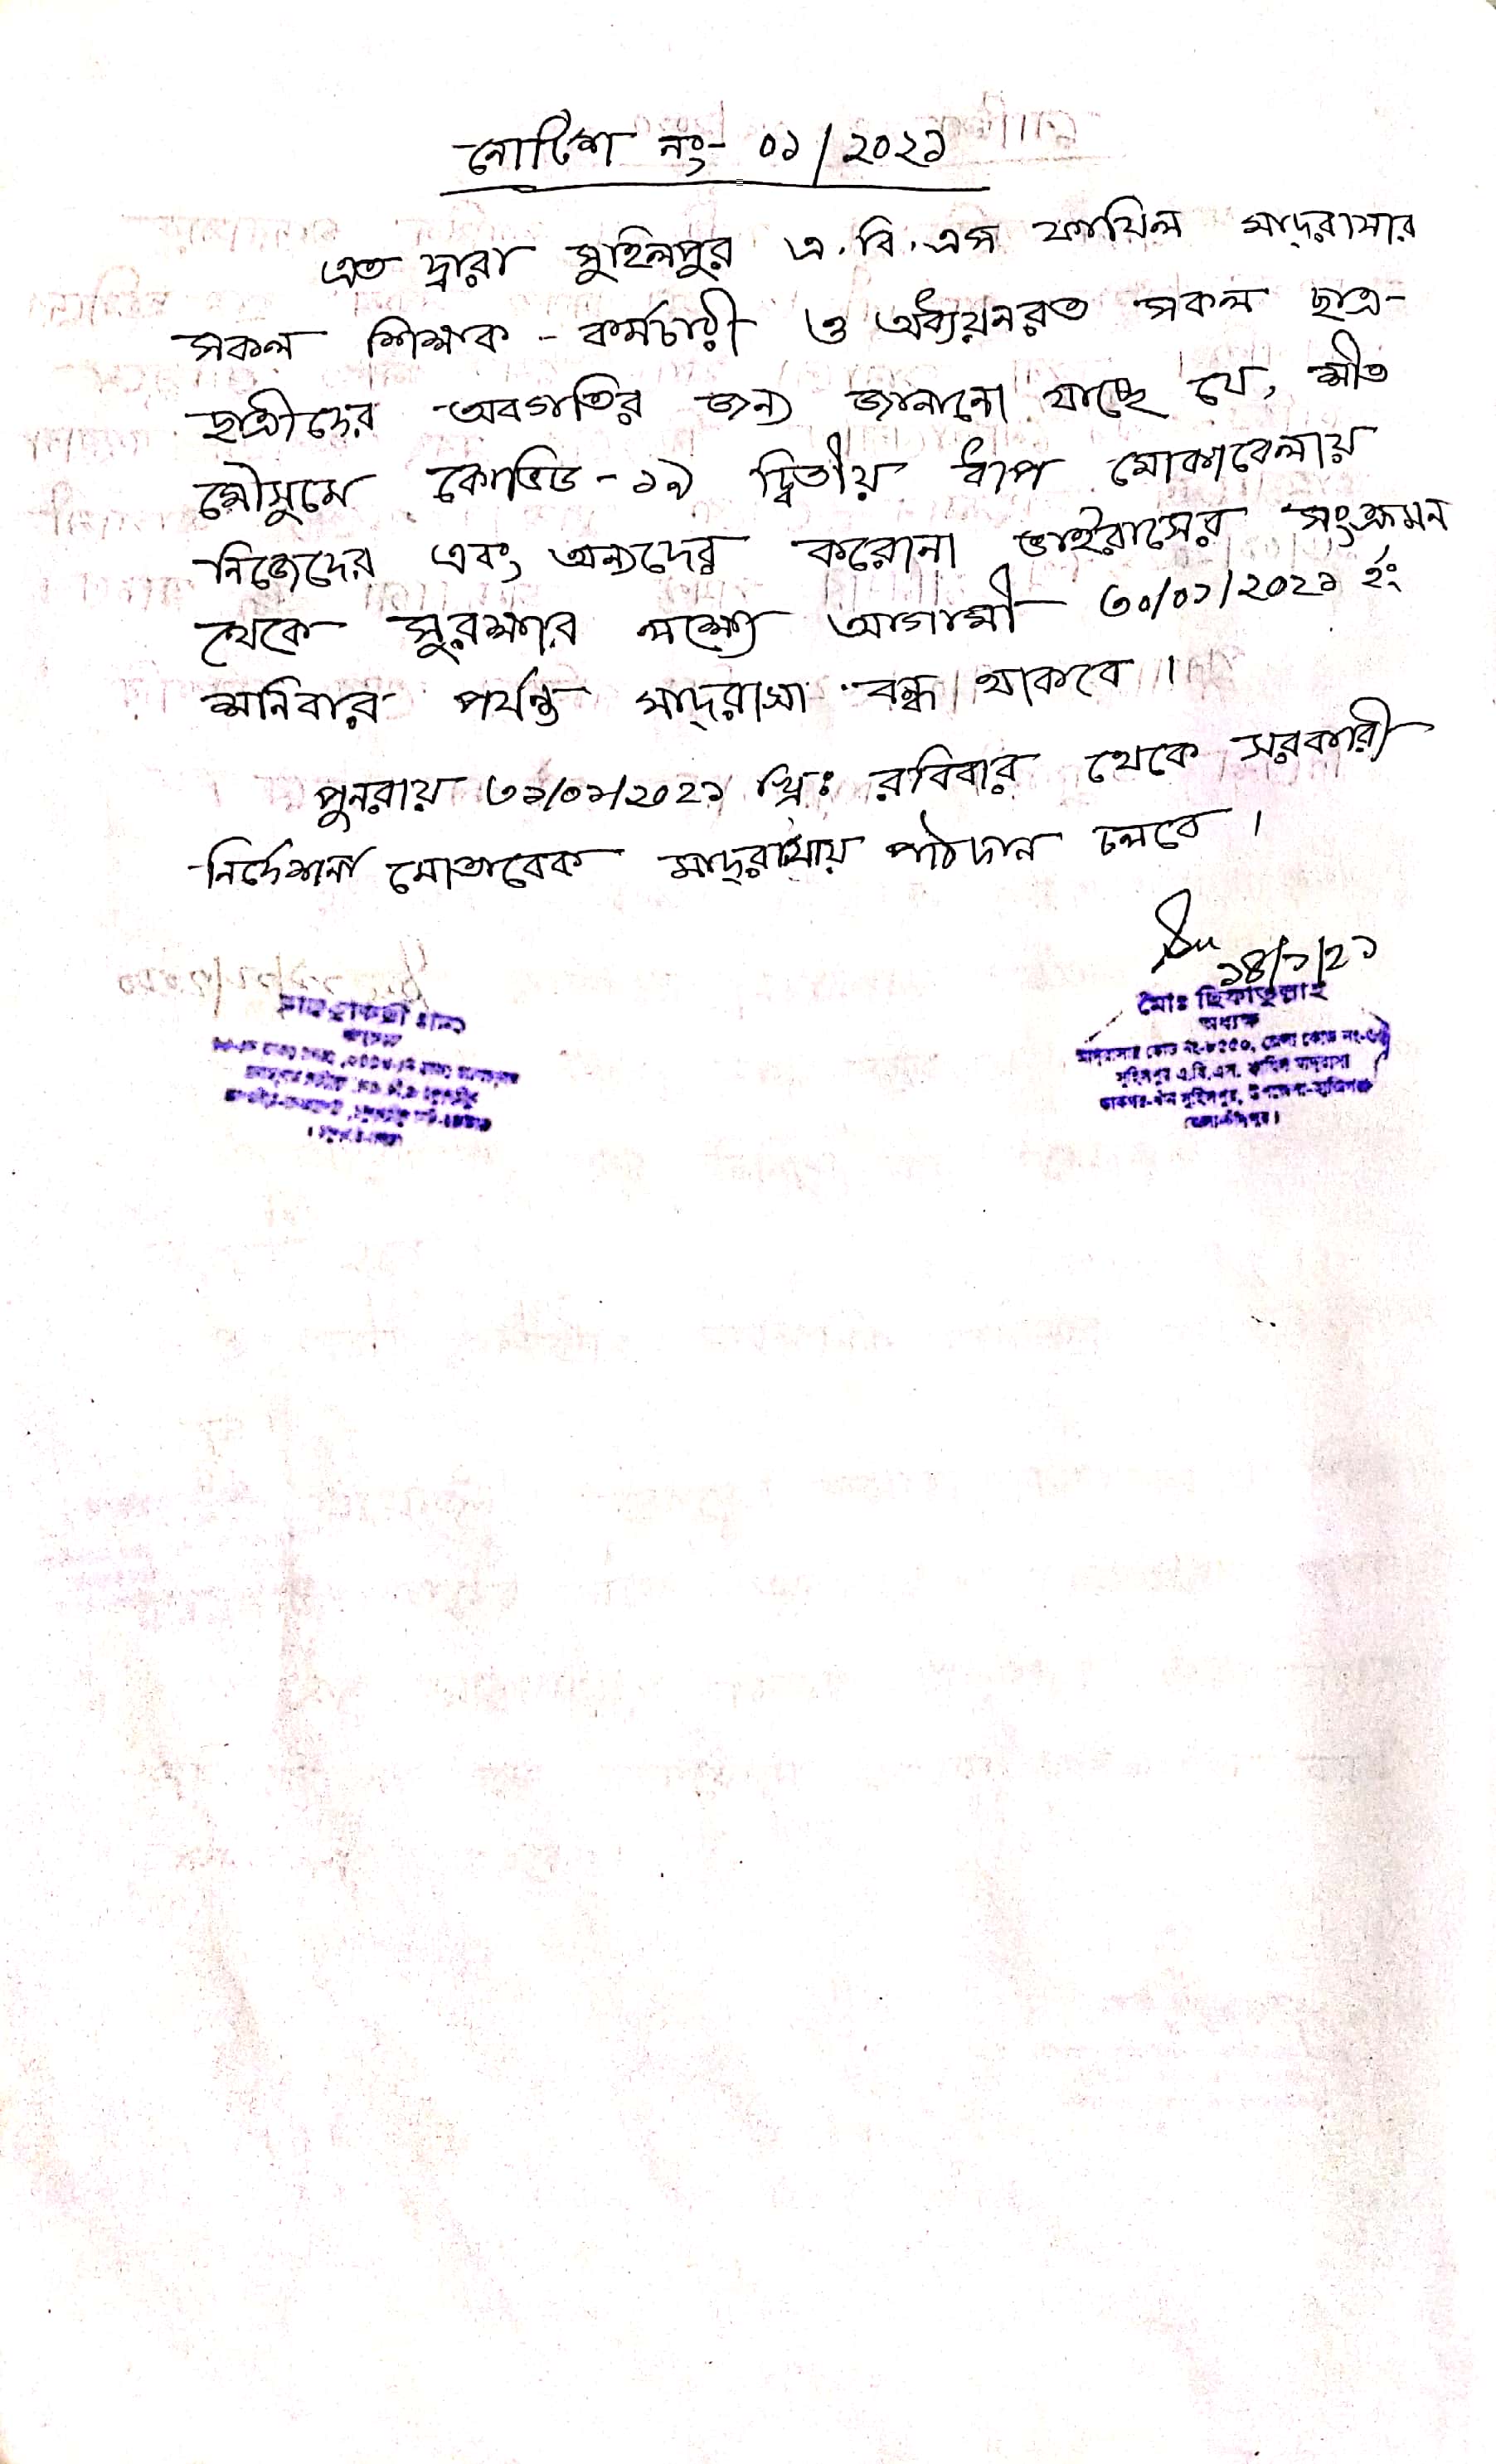 নোটিশ নং- ০১/২০২১
এত দ্বারা সুহিলপুর এ.বি.এস ফাযিল মাদ্‌রাসার
সকল শিক্ষক - কর্মচারী ও অধ্যয়নরত সকল ছাত্র-
ছাত্রীদের অবগতির জন্য জানানো যাচ্ছে যে, শীত
মৌসুমে কোভিড - ১৯ দ্বিতীয় ধাপ মোকাবেলায়
নিজেদের এবং অন্যদের করোনা ভাইরাসের সংক্রমন
থেকে সুরক্ষার লক্ষ্যে আগামী ৩০/০১/২০২১ ইং
শনিবার পর্যন্ত মাদ্‌রাসা বন্ধ থাকবে।
পুনরায় ৩১/০১/২০২১ খ্রিঃ রবিবার থেকে সরকারী
নির্দেশনা মোতাবেক মাদ্‌রাসায় পাঠদান চলবে।
১৪/১/২১
মোঃ ছিফাতুল্লাহ
অধ্যক্ষ
মাদ্‌রাসার কোড নং-৮২৫০, জেলা কোড নং-
সুহিলপুর এ.বি.এস. ফাযিল মাদ্‌রাসা
সুহিলপুর, উপজেলা-হাজিগঞ্জ
জেলা-চাঁদপুর।